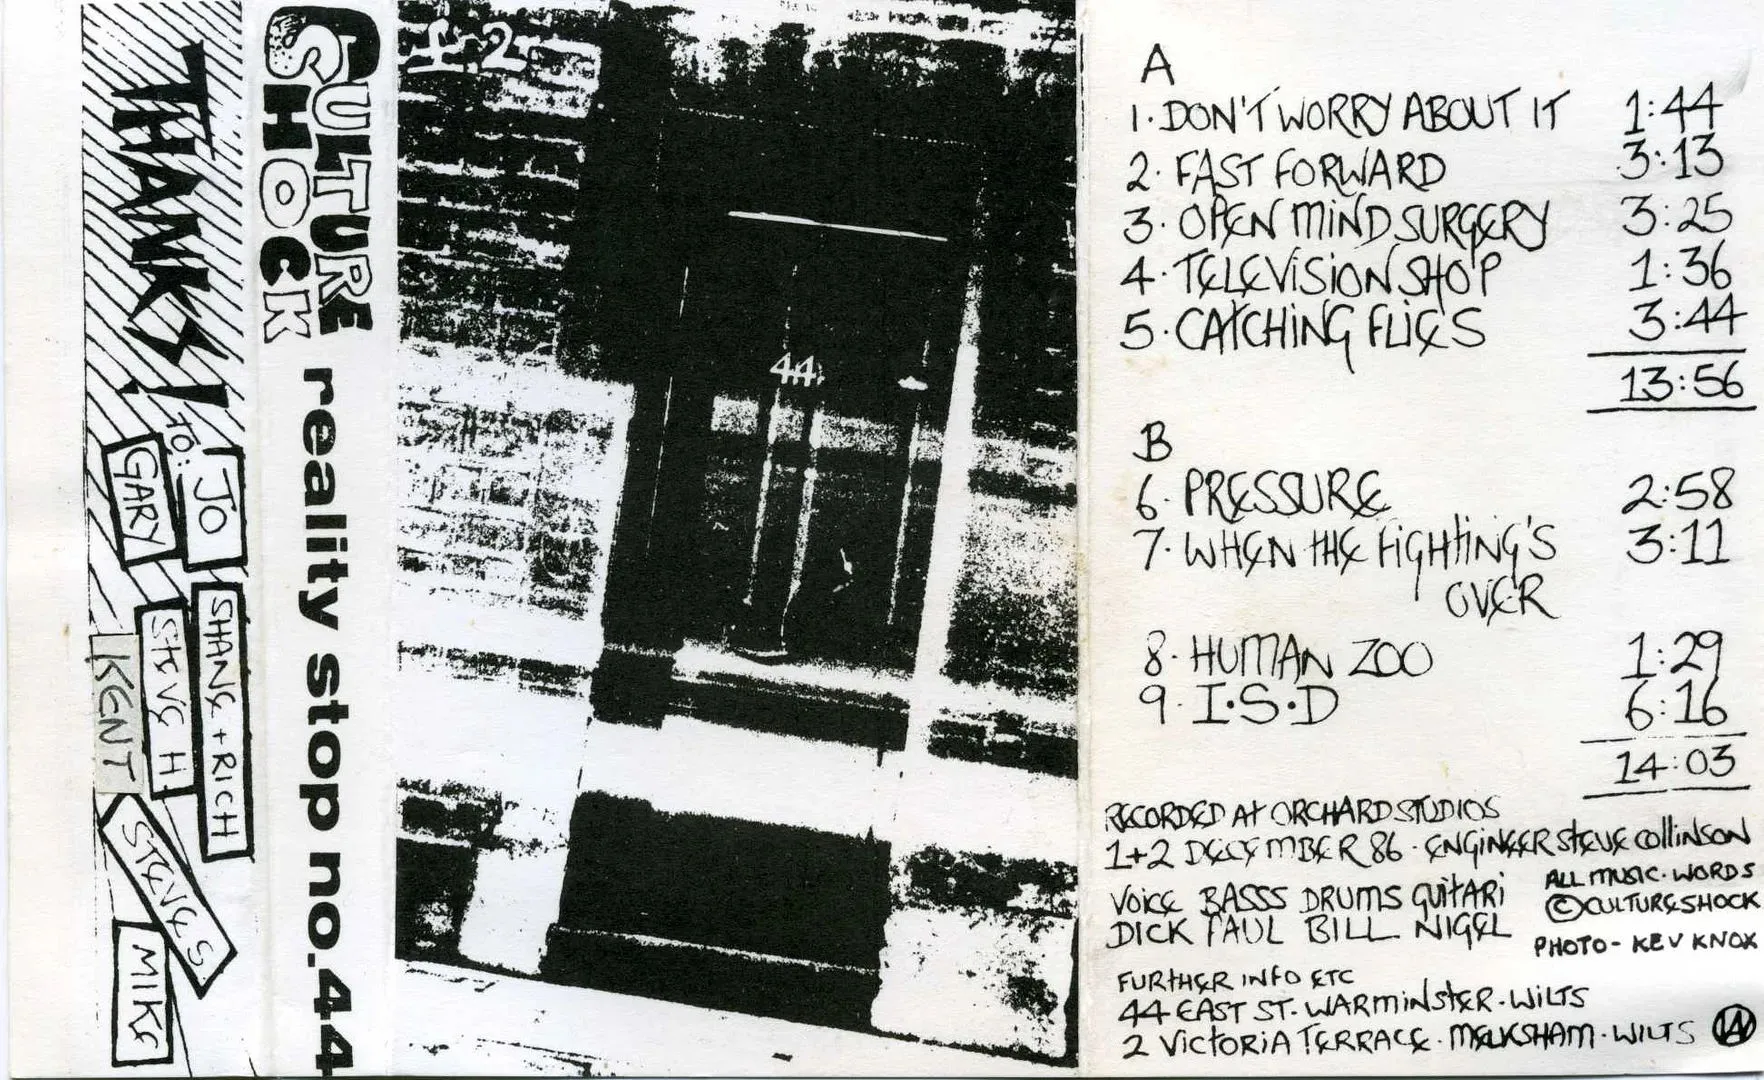 THANKS!
TO:
JO
GARY
SHANE + RICH
STEVE H
KENT
STEVE S
MIKE
CULTURE
SHOCK
reality stop no.44
£.2
44
A
1. DON'T WORRY ABOUT IT 1:44
2. FAST FORWARD 3:13
3. OPEN MIND SURGERY 3:25
4. TELEVISION SHOP 1:36
5. CATCHING FLIES 3:44
13:56
B
6. PRESSURE 2:58
7. WHEN THE FIGHTING'S 3:11
OVER
8. HUMAN ZOO 1:29
9. I.S.D 6:16
14:03
RECORDED AT ORCHARD STUDIOS
1+2 DECEMBER 86. ENGINEER STEVE COLLINSON
VOICE BASSS DRUMS GUITARI
DICK PAUL BILL NIGEL
ALL MUSIC. WORDS
© CULTURE SHOCK
PHOTO- KEV KNOX
FURTHER INFO ETC
44 EAST ST. WARMINSTER. WILTS
2 VICTORIA TERRACE. MELKSHAM. WILTS